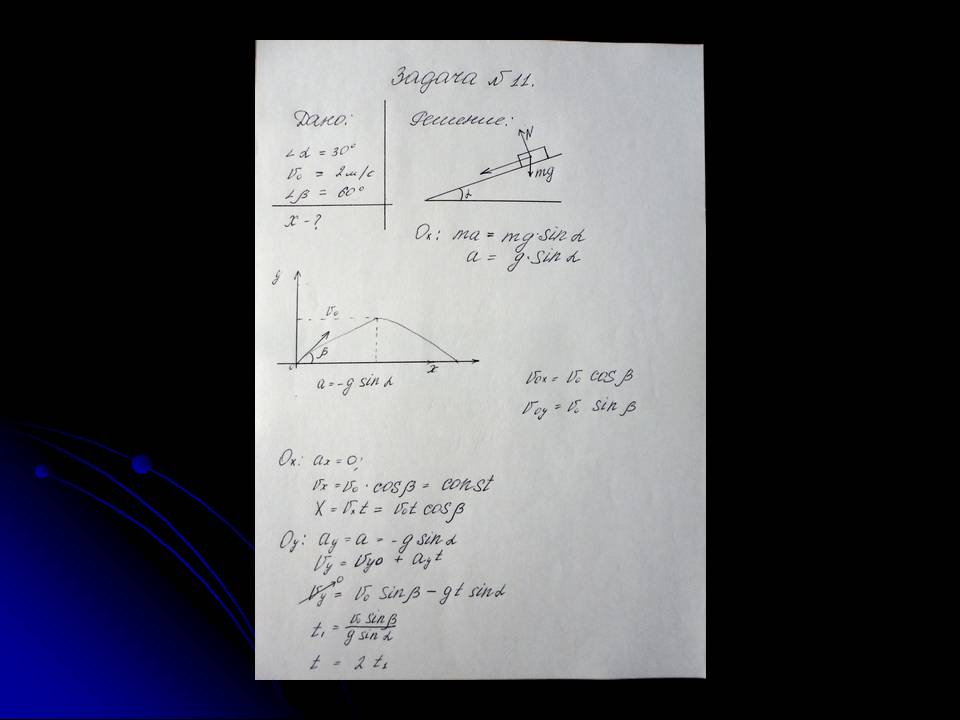 Задача № 11.
Дано:
∠α = 30°
v₀ = 2 м/с
∠β = 60°
x - ?
Решение:
N
mg
α
Ox: ma = mg·sin α
a = g·sin α
y
v₀
β
0
x
a = -g sin α
v₀x = v₀ cos β
v₀y = v₀ sin β
Ox: ax = 0;
vx = v₀ · cos β = const
X = vxt = v₀t cos β
Oy: ay = a = -g sin α
vy = vy₀ + ayt
vy = v₀ sin β - gt sin α
0
t₁ = v₀ sin β / g sin α
t = 2 t₁